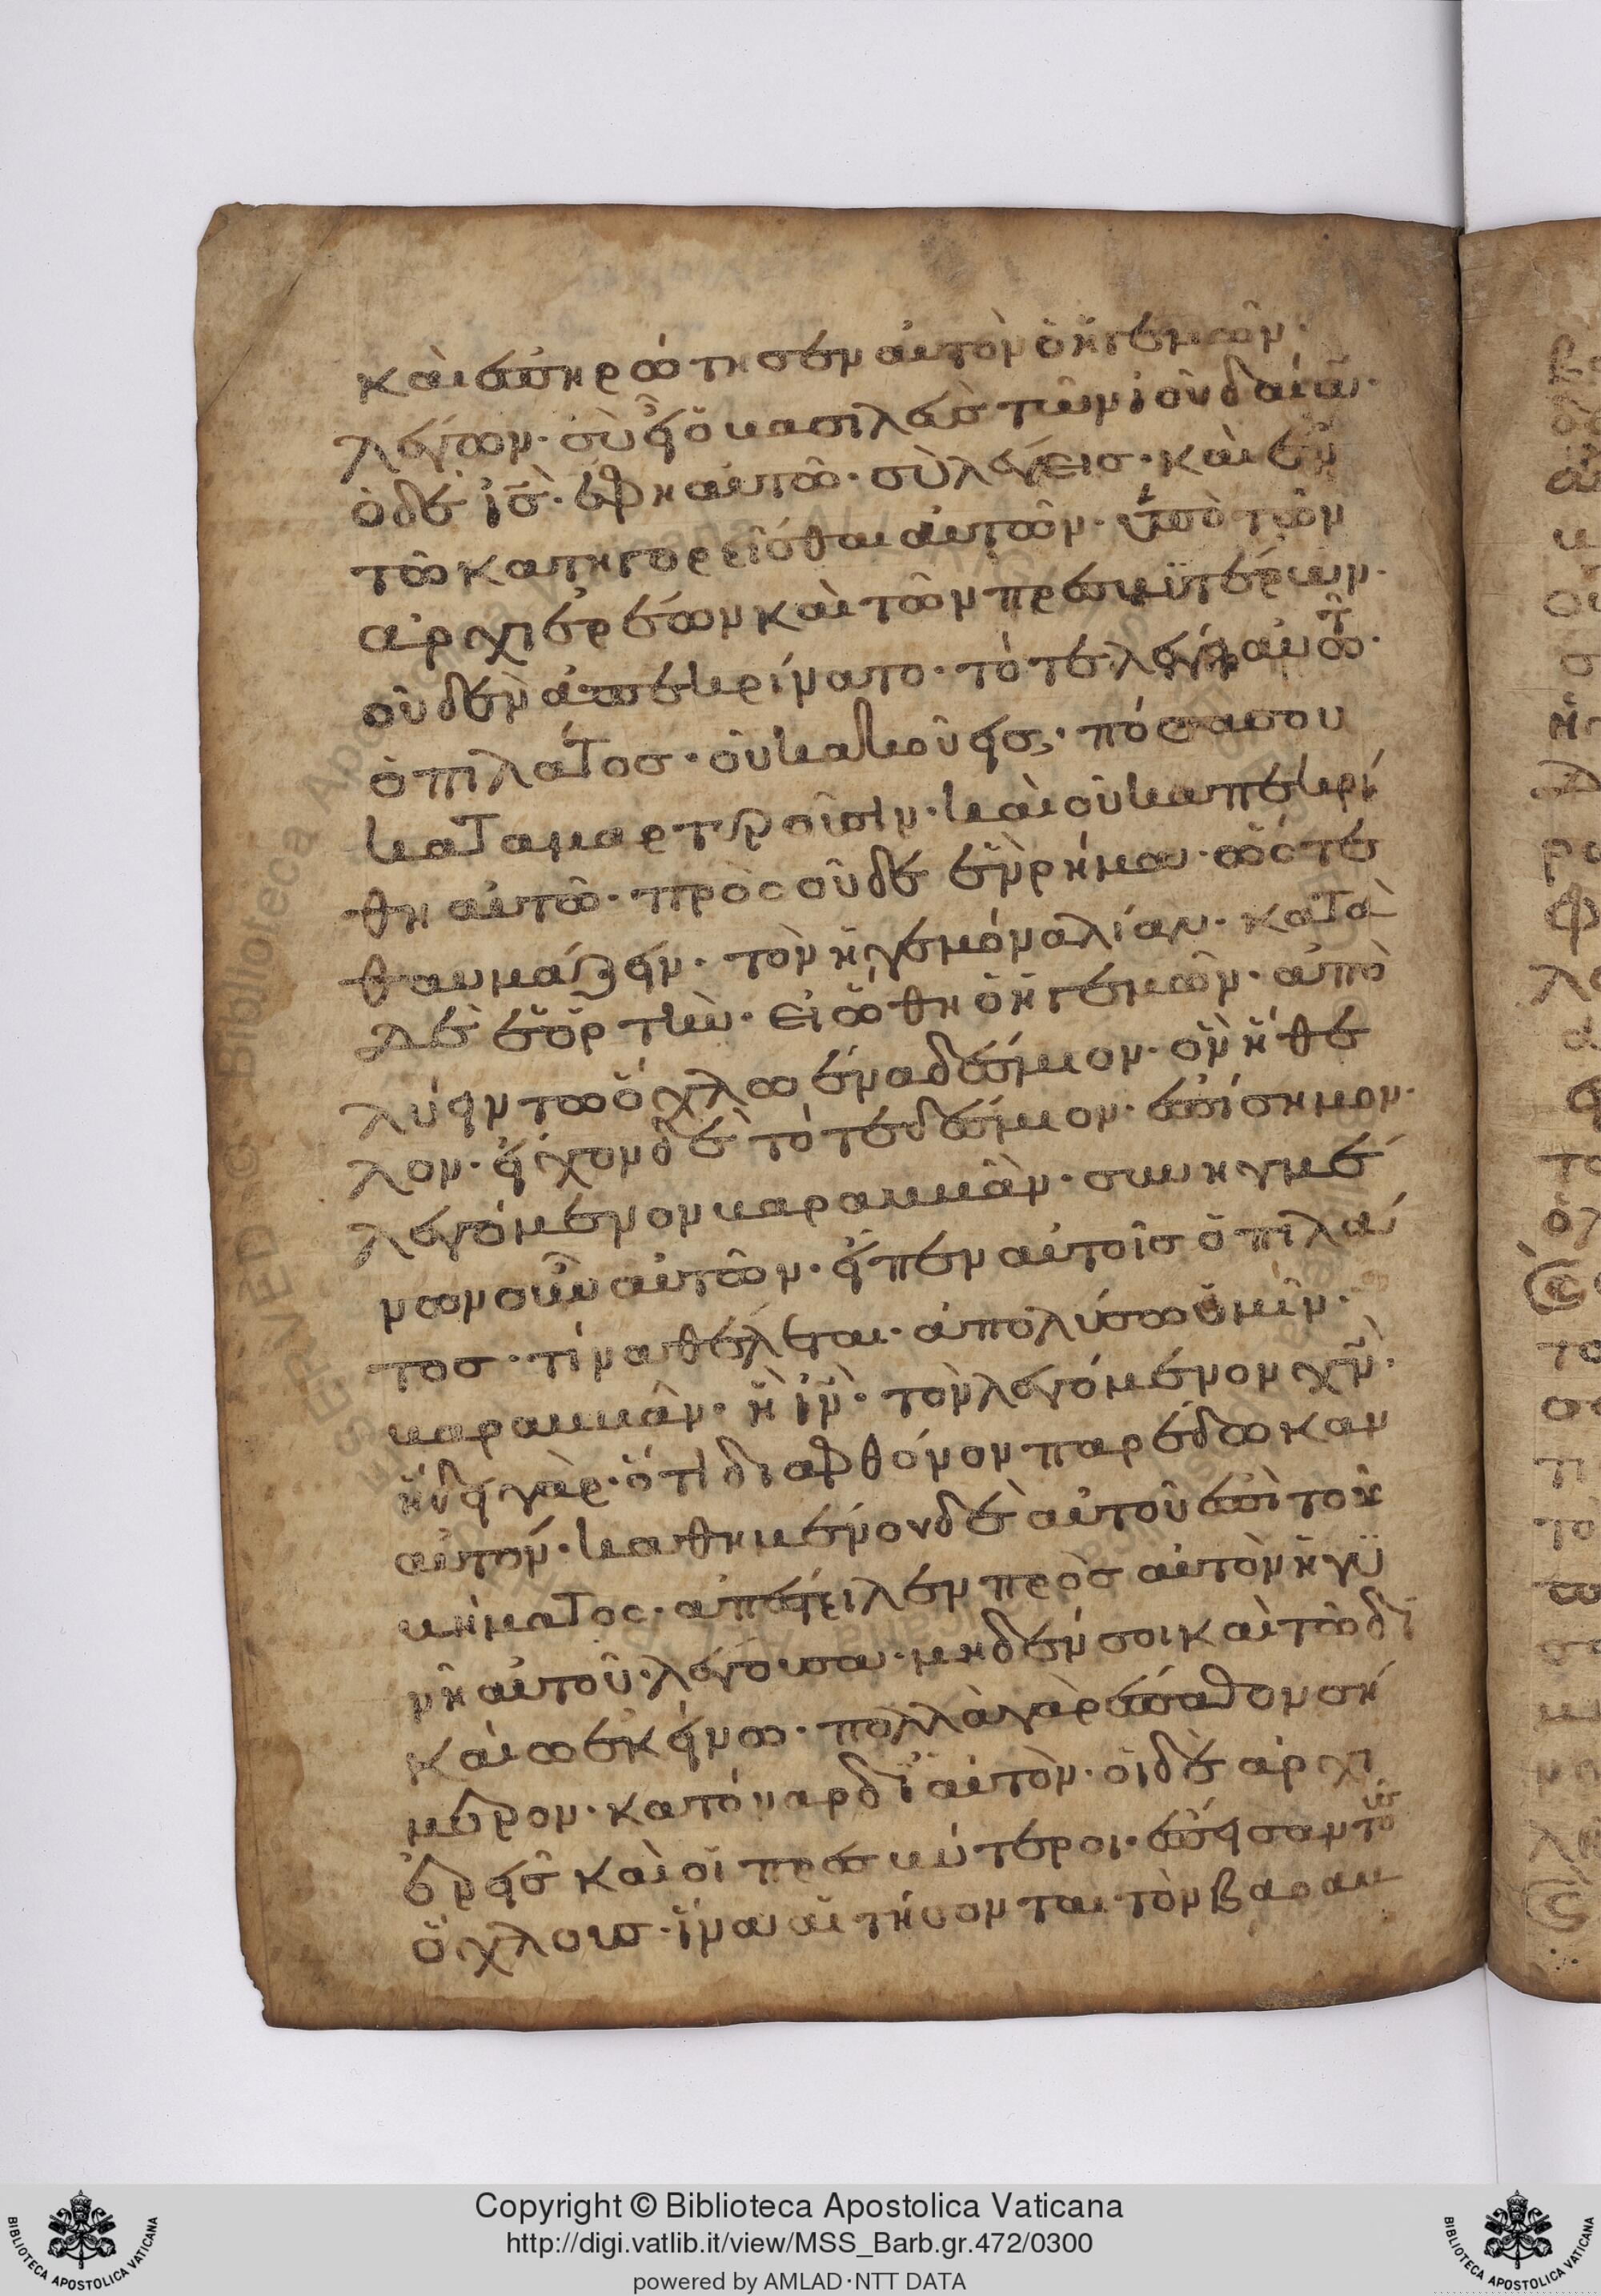 καὶ ἐπηρώτησεν αὐτὸν ὁ ἡγεμὼν·
λέγων· σὺ εἶ ὁ βασιλεὺς τῶν ἰουδαίω̃·
ὁ δὲ ἰ̅ς̅· ἔφη αὐτῶ· σὺ λέγεις· καὶ ἐν
τῶ κατηγορεῖσθαι αὐτῶν· ὑπὸ τῶν
ἀρχιερέων καὶ τῶν πρεσβυτέρων·
οὐδὲν ἀπεκρίνατο· τότε λέγει αὐτῶ·
ὁ πιλάτος· οὐκ ακούεις· πόσα σου
καταμαρτυροῦσιν· καὶ οὐκ απεκρί
θη αὐτῶ· πρὸς οὐδὲ ἓν ρήμα· ὥστε
θαυμάζειν· τὸν ἡγεμόνα λίαν· κατὰ
δὲ ἑορτὴν· εἰώθη ὁ ἡγεμὼν· ἀπὸ
λύειν τῶ ὄχλω ἕνα δέσμιον· ὃν ἤθε
λον· εἶχον δὲ τότε δέσμιον· ἐπίσημον·
λεγόμενον βαραββᾶν· συνηγμέ
νων οὖν αὐτῶν· εἶπεν αὐτοῖς ὁ πιλά
τος· τίνα θέλεται· ἀπολύσω ὑμῖν·
βαραββᾶν· ἢ ἰ̅ν̅· τὸν λεγόμενον χ̅ν̅·
ἤδει γὰρ· ὅτι διαφθόνον παρέδωκαν
αὐτόν· καθημένου δὲ αὐτοῦ ἐπὶ τοῦ
βήματος· ἀπέστειλεν πρὸς αὐτὸν ἡ γϋ
νὴ αὐτοῦ· λέγουσα· μηδὲν σοι καὶ τῶ δϊ
καίω ἐκείνω· πολλὰ γὰρ ἔπαθον σή
μερον· κατ' όναρ δϊ αὐτὸν· οἱ δὲ ἀρχι
ἐρεῖς καὶ οἱ πρεσβύτεροι· ἔπεισαν τοὺς
ὄχλους· ἵνα αἰτήσονται τὸν βαραβ
Copyright © Biblioteca Apostolica Vaticana
http://digi.vatlib.it/view/MSS_Barb.gr.472/0300
powered by AMLAD·NTT DATA
BIBLIOTECA APOSTOLICA VATICANA
BIBLIOTECA APOSTOLICA VATICANA